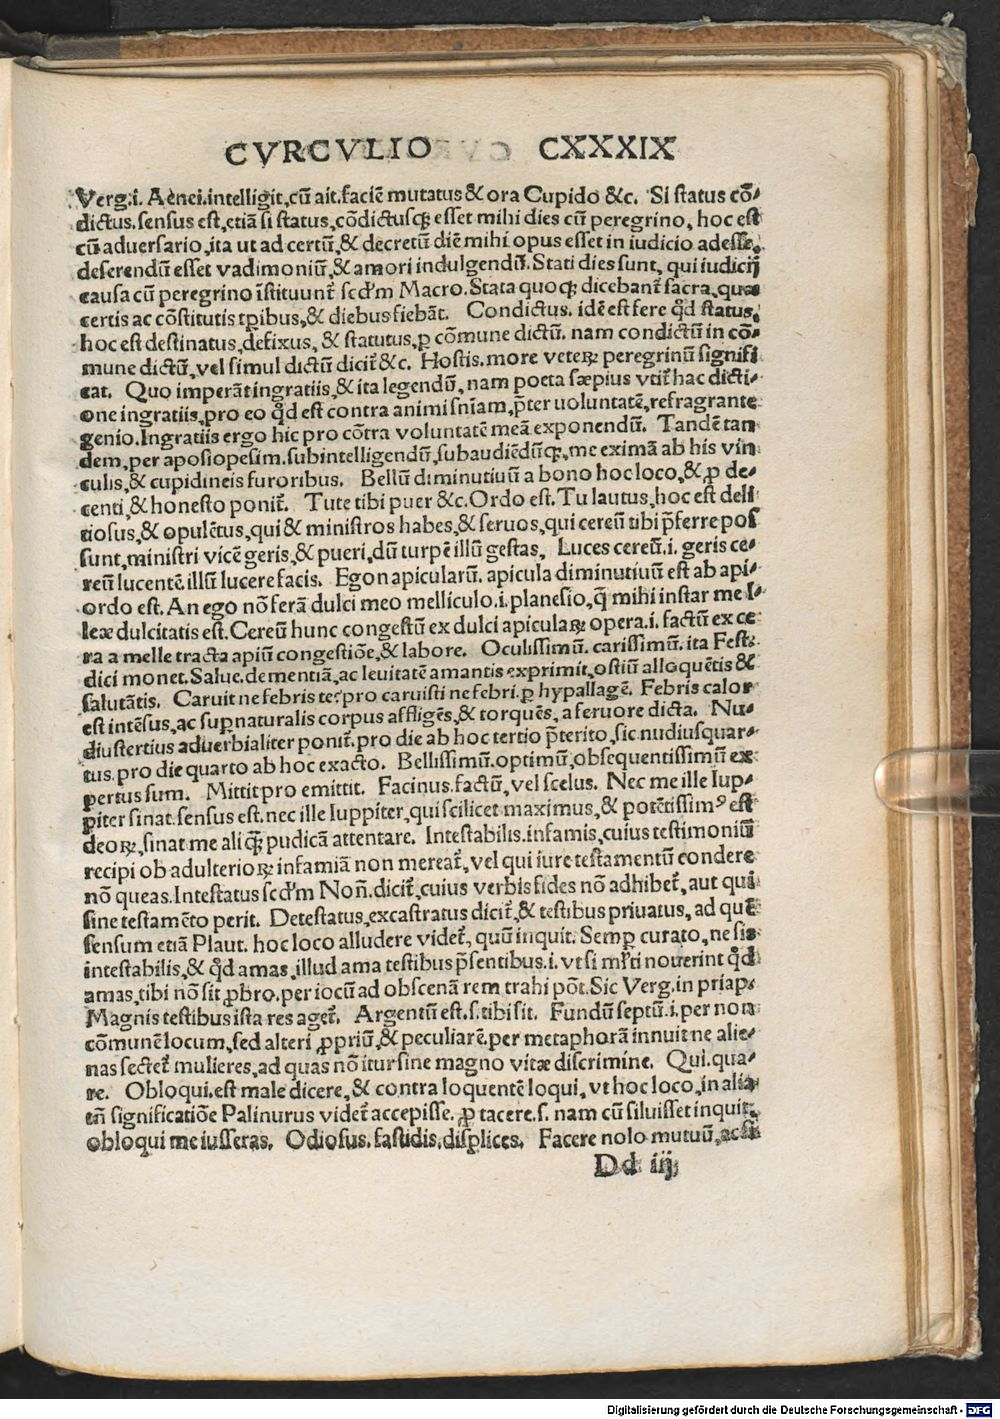 CVRCVLIO CXXXIX
Verg.i. Aenei.intelligit,cū ait.faciē mutatus & ora Cupido &c. Si status cō-
dictus.sensus est,etiā si status,cōdictusq; esset mihi dies cū peregrino, hoc est
cū aduersario,ita ut ad certū,& decretū diē mihi opus esset in iudicio adesse,
deserendū esset vadimoniū,& amori indulgendū.Stati dies sunt, qui iudicij
causa cū peregrino īstituunt᷑ scd'm Macro.Stata quoq; dicebant᷑ sacra,quæ
certis ac cōstitutis tꝑibus,& diebus fiebāt. Condictus. idē est fere qd̓ status,
hoc est destinatus,defixus, & statutus,ꝑ cōmune dictū. nam condictū in cō-
mune dictū,vel simul dictū dicit᷑ &c. Hostis.more veteꝝ peregrinū signifi
cat. Quo imperāt ingratiis,& ita legendū,nam poeta sæpius vtit᷑ hac dicti-
one ingratiis,pro eo qd̓ est contra animi sn̄iam,p̄ter uoluntatē,refragrante
genio.Ingratiis ergo hic pro cōtra voluntatē meā exponendū. Tandē tan
dem,per aposiopesim.subintelligendū,subaudiēdūq;,me eximā ab his vin
culis,& cupidineis furoribus. Bellū diminutiuū a bono hoc loco,& ꝓ de-
centi,& honesto ponit᷑. Tute tibi puer &c.Ordo est.Tu lautus,hoc est deli
tiosus,& opulētus,qui & ministros habes,& seruos,qui cereū tibi p̄ferre pos
sunt,ministri vicē geris,& pueri,dū turpē illū gestas, Luces cereū.i. geris ce-
reū lucentē illū lucere facis. Egon apicularū. apicula diminutiuū est ab api-
ordo est.An ego nō ferā dulci meo melliculo.i.planesio,q̄ mihi instar mel-
leæ dulcitatis est.Cereū hunc congestū ex dulci apiculaꝝ opera.i. factū ex ce
ra a melle tracta apiū congestiōe,& labore. Oculissimū. carissimū.ita Fest.
dici monet.Salue.dementiā,ac leuitatē amantis exprimit,ostiū alloquētis &
salutātis. Caruit ne febris te? pro caruisti ne febri.ꝑ hypallagē. Febris calor
est intēsus,ac supnaturalis corpus affligēs,& torquēs,a feruore dicta. Nu-
diustertius aduerbialiter ponit᷑.pro die ab hoc tertio p̄terito,sic nudiusquar-
tus.pro die quarto ab hoc exacto. Bellissimū.optimū,obsequentissimū ex
pertus sum. Mittit pro emittit. Facinus.factū,vel scelus. Nec me ille Iup-
piter sinat.sensus est.nec ille Iuppiter,qui scilicet maximus,& potētissimꝰ est
deoꝝ,sinat me aliq̄ pudicā attentare. Intestabilis.infamis,cuius testimoniū
recipi ob adulterioꝝ infamiā non mereat᷑,vel qui iure testamentū condere
nō queas.Intestatus scd'm Non̄.dicit᷑,cuius verbis fides nō adhibet᷑,aut qui
sine testamēto perit. Detestatus,excastratus dicit᷑,& testibus priuatus,ad quē
sensum etiā Plaut. hoc loco alludere videt᷑, quū inquit.Semꝑ curato,ne sis
intestabilis,& qd̓ amas,illud ama testibus p̄sentibus.i.vt si mr̄ti nouerint qd̓
amas,tibi nō sit ꝓbro.per iocū ad obscenā rem trahi pōt.Sic Verg.in priap.
Magnis testibus ista res aget᷑. Argentū est.s.tibi sit. Fundū septū.i.per non
cōmunē locum,sed alteri ꝓpriū,& peculiarē.per metaphorā innuit ne alie-
nas sectet᷑ mulieres,ad quas nō itur sine magno vitæ discrimine. Qui.qua-
re. Obloqui.est male dicere,& contra loquentē loqui,vt hoc loco,in alia
tn̄ significatiōe Palinurus videt᷑ accepisse. ꝓ tacere.s. nam cū siluisset inquit,
obloqui me iusseras. Odiosus.fastidis.displices. Facere nolo mutuū,ac si
Dd iij
Digitalisierung gefördert durch die Deutsche Forschungsgemeinschaft - DFG